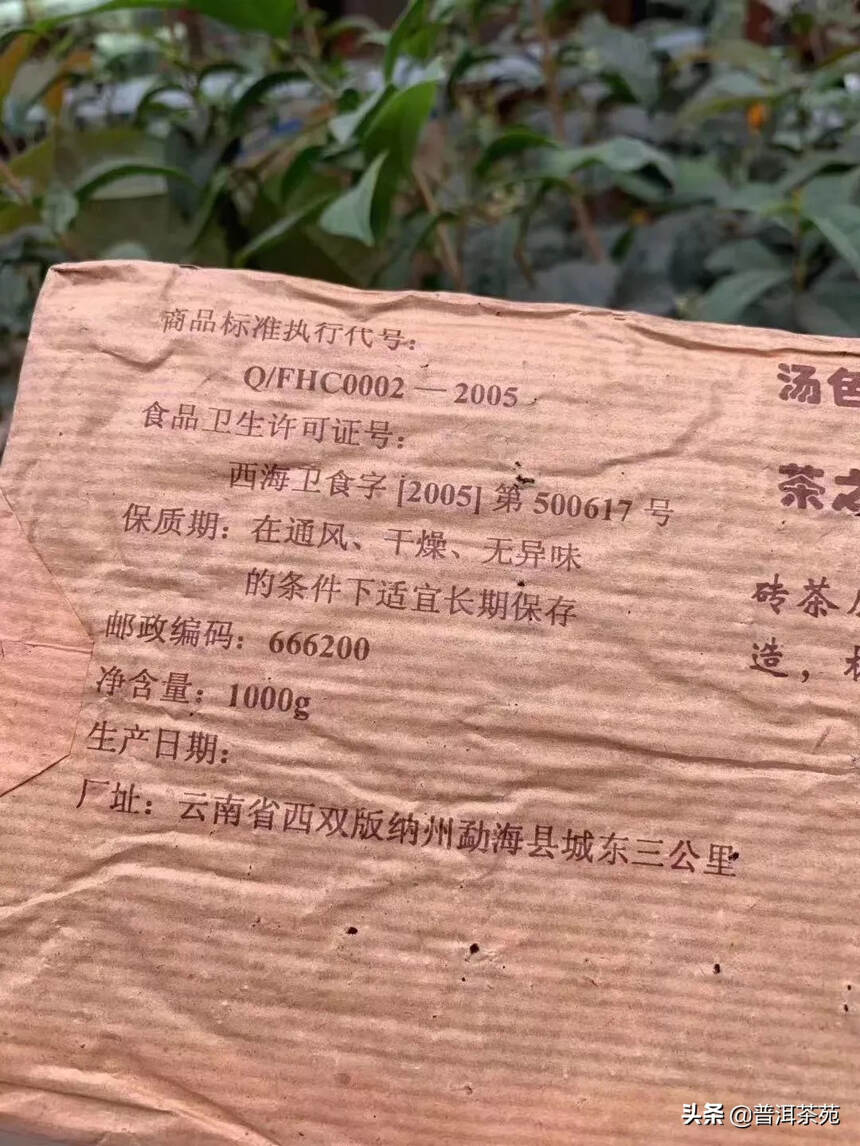 商品标准执行代号：
Q/FHC0002 — 2005
食品卫生许可证号：
西海卫食字 [2005] 第 500617 号
保质期：在通风、干燥、无异味
的条件下适宜长期保存
邮政编码：666200
净含量：1000g
生产日期：
厂址：云南省西双版纳州勐海县城东三公里
汤色
茶
砖茶
造，
头条 @普洱茶苑